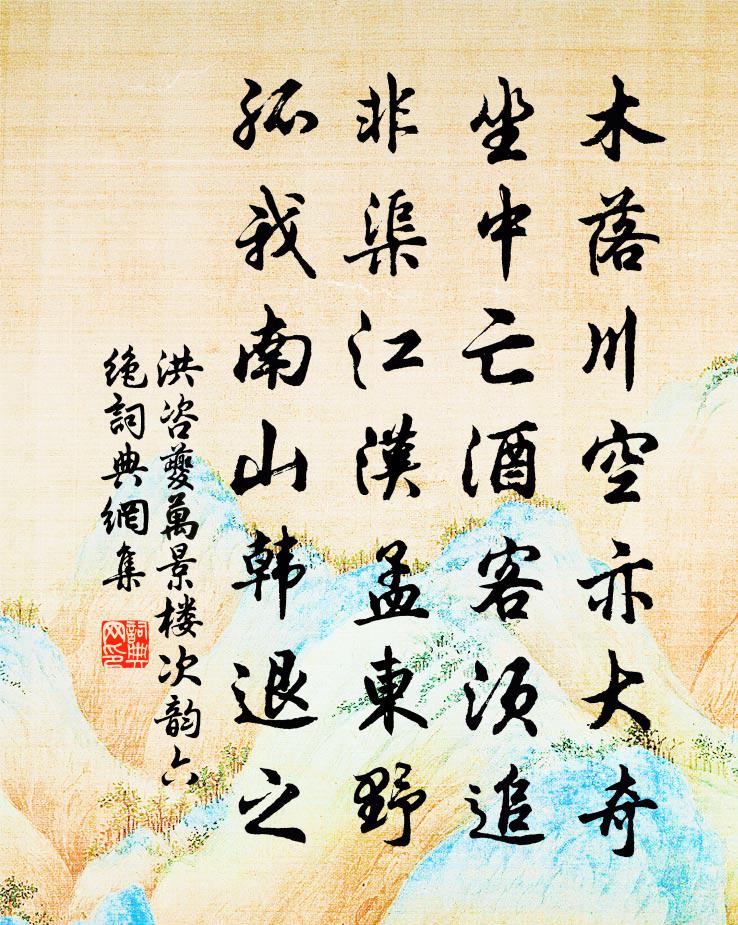 木落川空亦大奇
坐中亡酒客须追
非渠江漢孟東野
孤我南山韩退之
洪咨夔萬景楼次韵六
绝詞典網集
詞典
网印